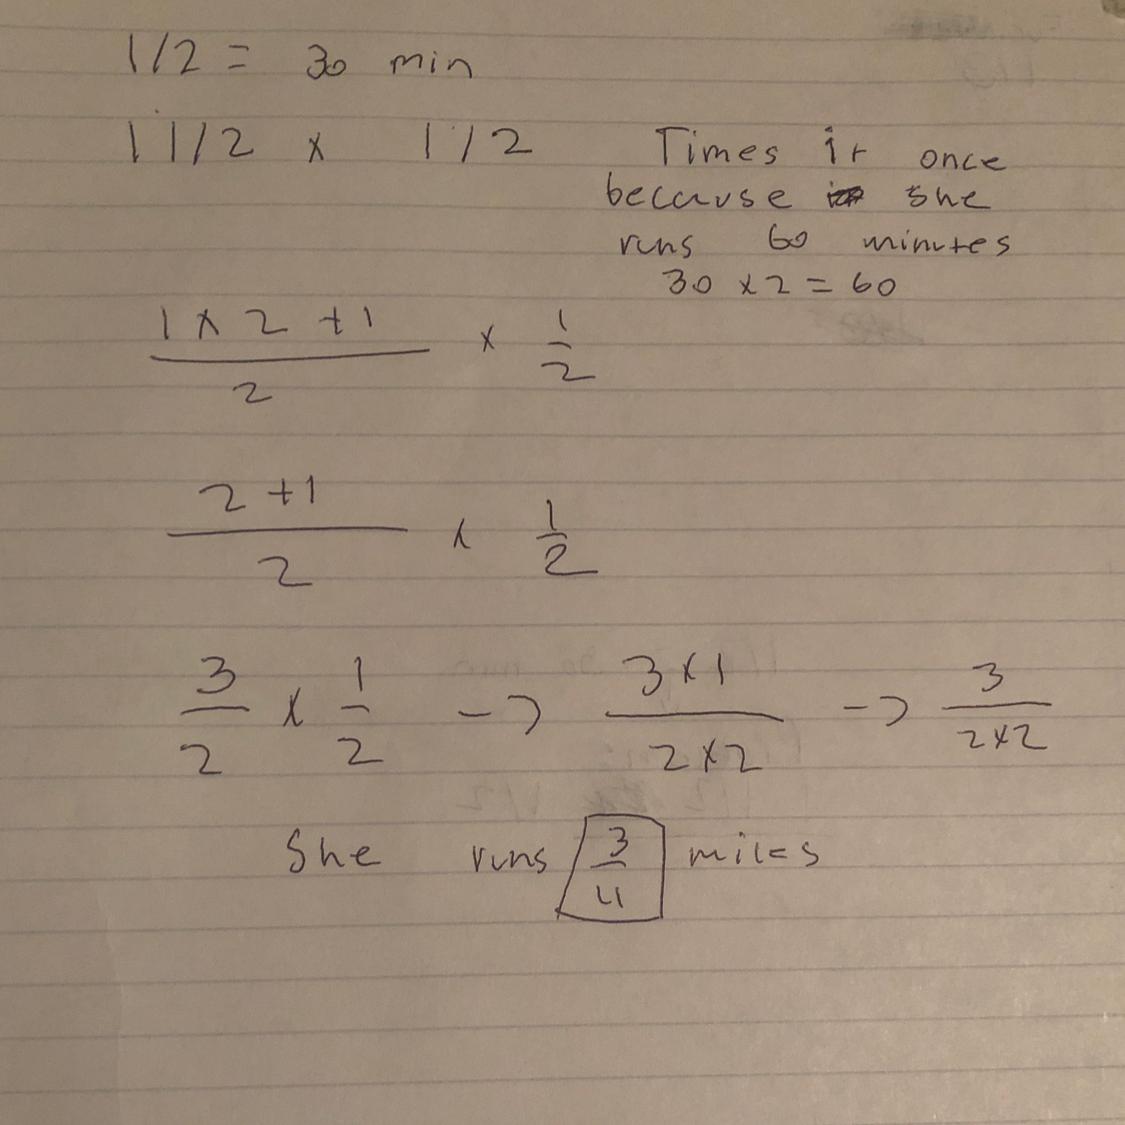 1/2 = 30 min
1 1/2 x 1/2
Times it once
because she
runs 60 minutes
30 x 2 = 60
1 x 2 + 1 / 2 x 1/2
2 + 1 / 2 x 1/2
3/2 x 1/2 -> 3 x 1 / 2 x 2 -> 3 / 2 x 2
She runs 3/4 miles